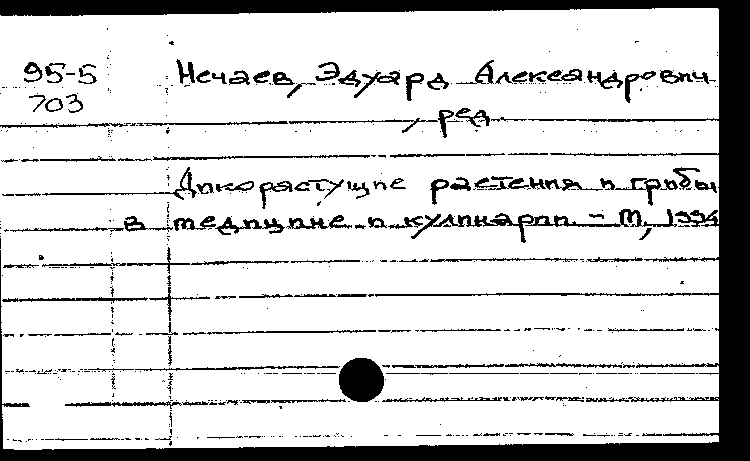 95-5 Нечаев, Эдуард Александрович
703 , ред.
Дикорастущие растения и грибы
в медицине и кулинарии. - М, 1994